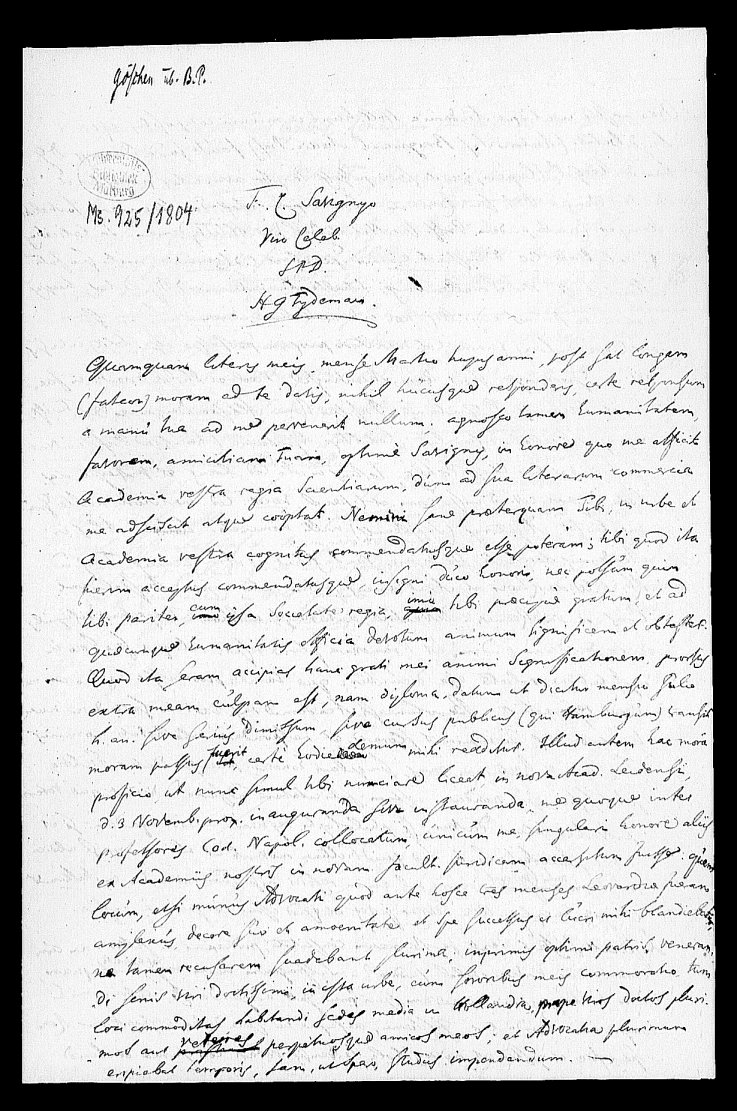 Göschen üb. B.P.
Universitäts-
Bibliothek
Marburg
Ms. 925/1804
F. C. Savignyo
Viro Celeb.
S.P.D.
H G Tydeman.
Quamquam literis meis, mense Martio hujus anni, post sat longam
(fateor) moram ad te datis, nihil hucusque respondens, certe responsum
a manu tua ad me pervenerit nullum; agnosco tamen humanitatem,
favorem, amicitiam Tuam, optime Savigny, in honore quo me afficit
Academia vestra regia Scientiarum, dum ad sua literarum commercia
me adsciscit atque cooptat. Nemini sane praeterquam Tibi, in urbe et
Academia vestra cognitus commendatusque esse poteram; tibi quod ita
fierim acceptus commendatusque, insigni duco honori, nec possum quin
tibi pariter, cum ipsa Societate regia, imo tibi praecipue gratum et ad
quaecunque humanitatis officia devotum animum significem et obtester.
Quod ita seram accipias hanc grati mei animi significationem, prorsus
extra meam culpam est, nam diploma, datum ut dicitur mense Julio
h. an. sive serius dimissum, sive cursus publicus (qui Hamburgum) transiit
moram passus fuerit, certe hodie demum mihi redditur. Illud autem hac mora
proficio ut nunc simul tibi nunciare liceat in nova Acad. Leidensi,
d. 3 Novemb. prox. inauguranda sive instauranda, me quoque inter
professores Cod. Napol. collocatum, unicum me, singulari honore aliis
ex Academiis nostris in novam facult. juridicam accersitum fuisse. quem
locum, etsi munus Advocati quod ante hosce tres menses Leovardiae fueram
amplexus decore suo et amoenitate et spe successus et lucri mihi blandiebatur,
ne tamen recusarem suadebant plurima, inprimis optimi patris, veneran-
di senis viri doctissimi, in ista urbe, cum sororibus meis commoratio, tum
loci commoditas habitandi sedes media in Hollandia, prope viros doctos pluri-
mos aut veteres perpetuosque amicos meos; et Advocatia plurimum
eripiebat temporis, jam, ut spero, studiis impendendum. —